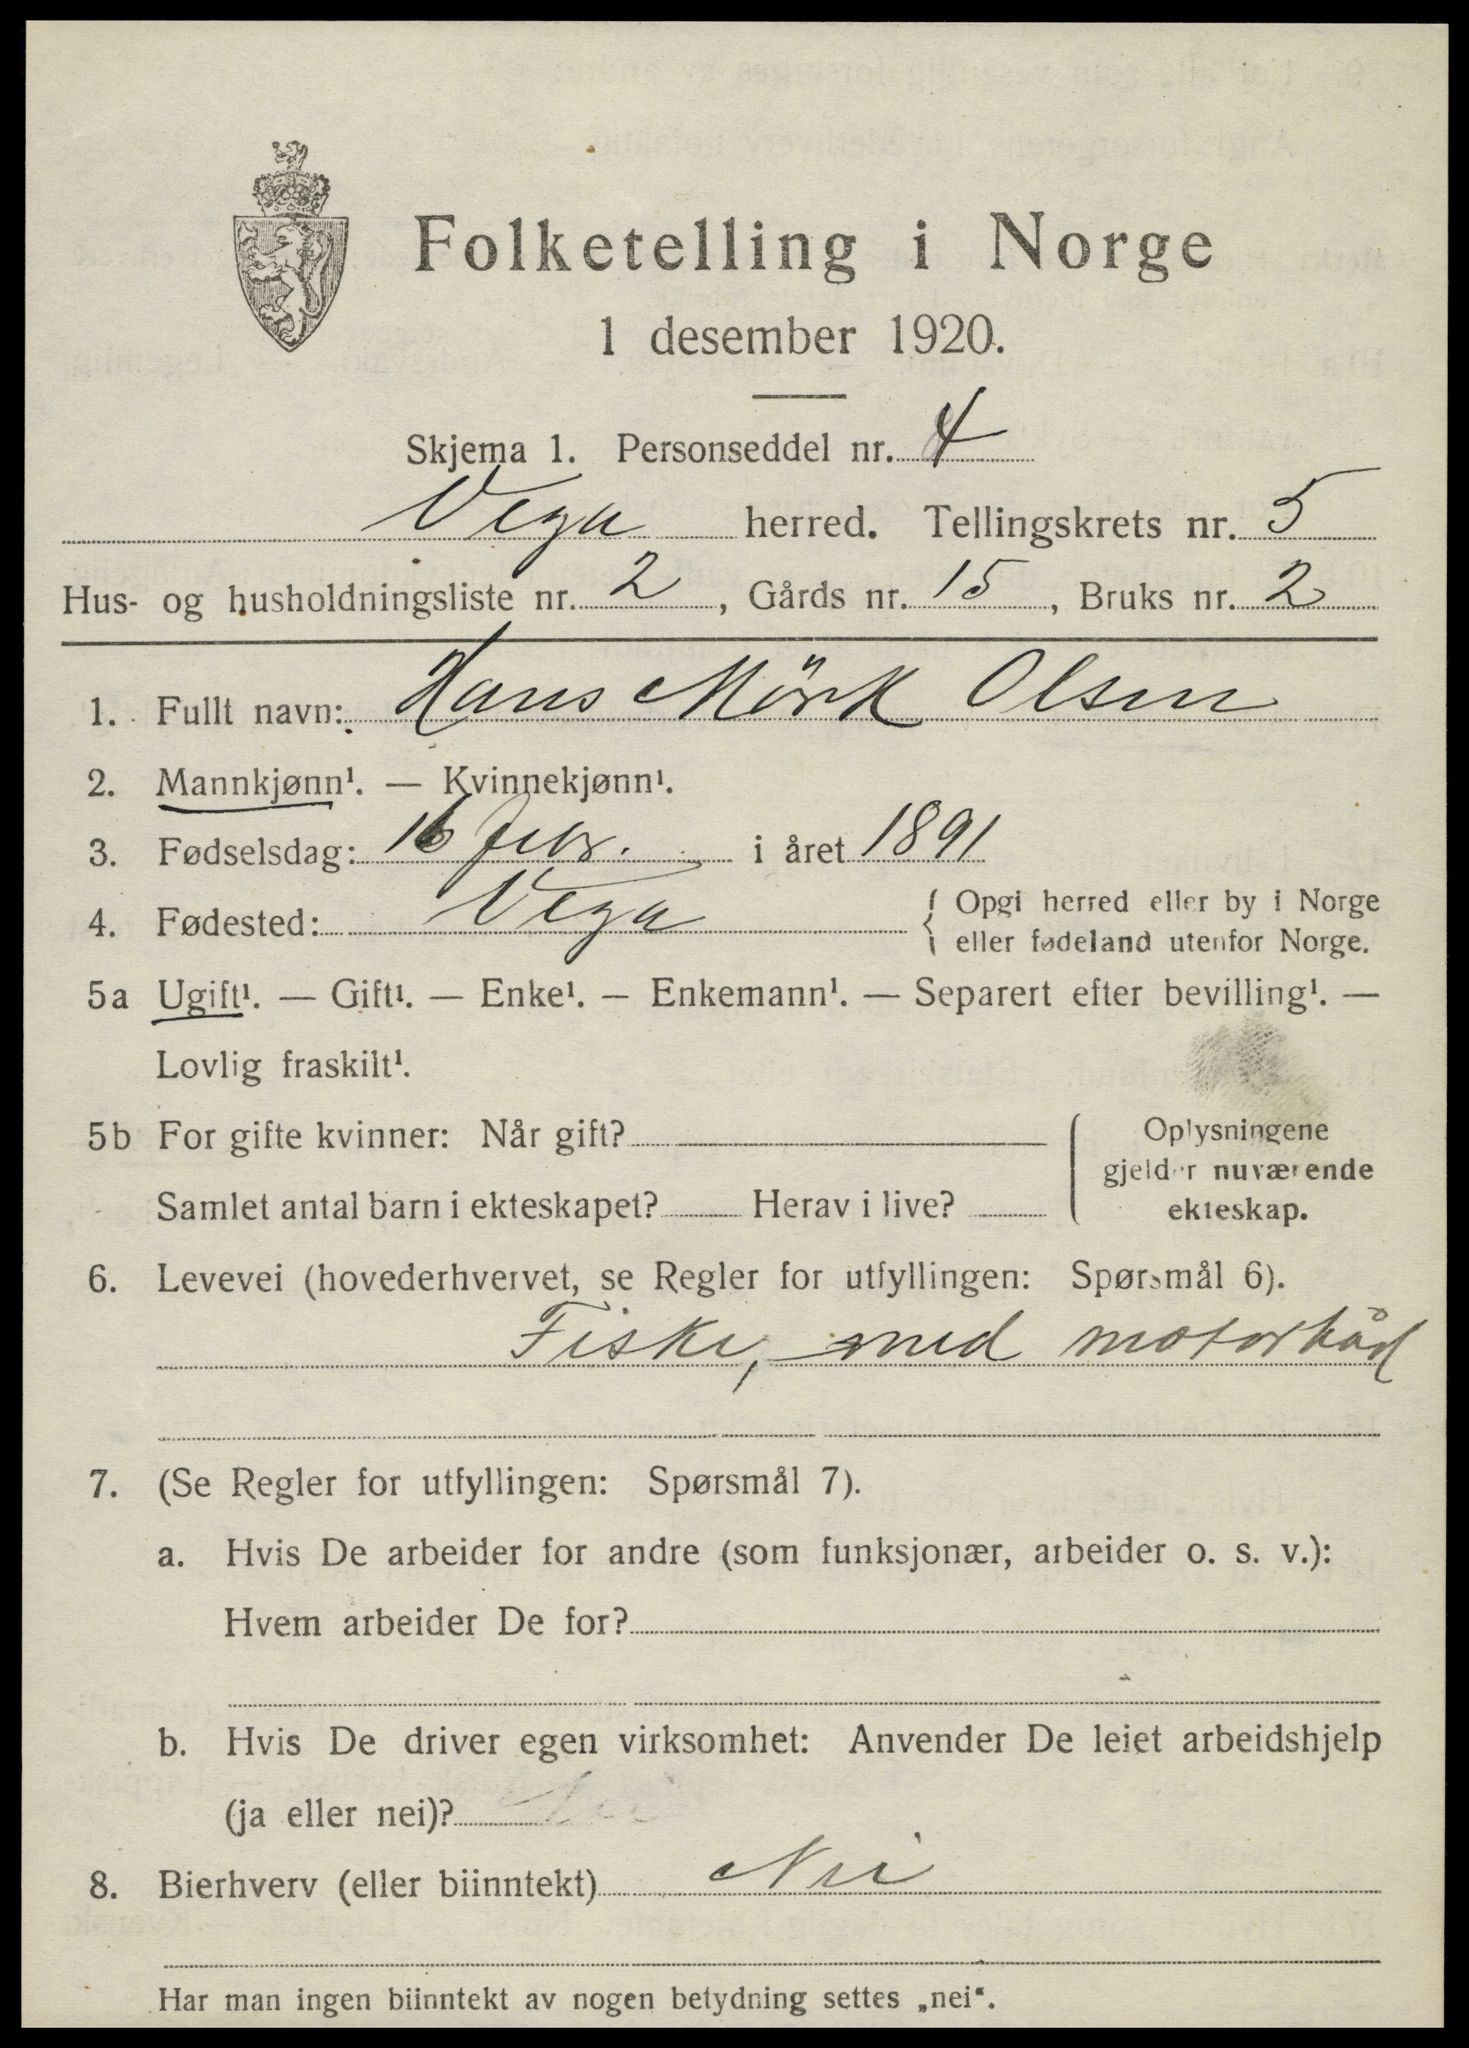 Folketelling i Norge
1 desember 1920.
Skjema 1. Personseddel nr. 4
Vega herred. Tellingskrets nr. 5
Hus- og husholdningsliste nr. 2, Gårds nr. 15, Bruks nr. 2
1. Fullt navn: Hans Mörk Olsen
2. Mannkjønn¹. — Kvinnekjønn¹.
3. Fødselsdag: 16 febr. i året 1891
4. Fødested: Vega { Opgi herred eller by i Norge
eller fødeland utenfor Norge.
5a Ugift¹. — Gift¹. — Enke¹. — Enkemann¹. — Separert efter bevilling¹. —
Lovlig fraskilt¹.
5b For gifte kvinner: Når gift?
Samlet antal barn i ekteskapet? Herav i live?
Oplysningene
gjelder nuværende
ekteskap.
6. Levevei (hovederhvervet, se Regler for utfyllingen: Spørsmål 6).
Fiske, med motorbåd
7. (Se Regler for utfyllingen: Spørsmål 7).
a. Hvis De arbeider for andre (som funksjonær, arbeider o. s. v.):
Hvem arbeider De for?
b. Hvis De driver egen virksomhet: Anvender De leiet arbeidshjelp
(ja eller nei)? Nei
8. Bierhverv (eller biinntekt) Nei
Har man ingen biinntekt av nogen betydning settes „nei“.